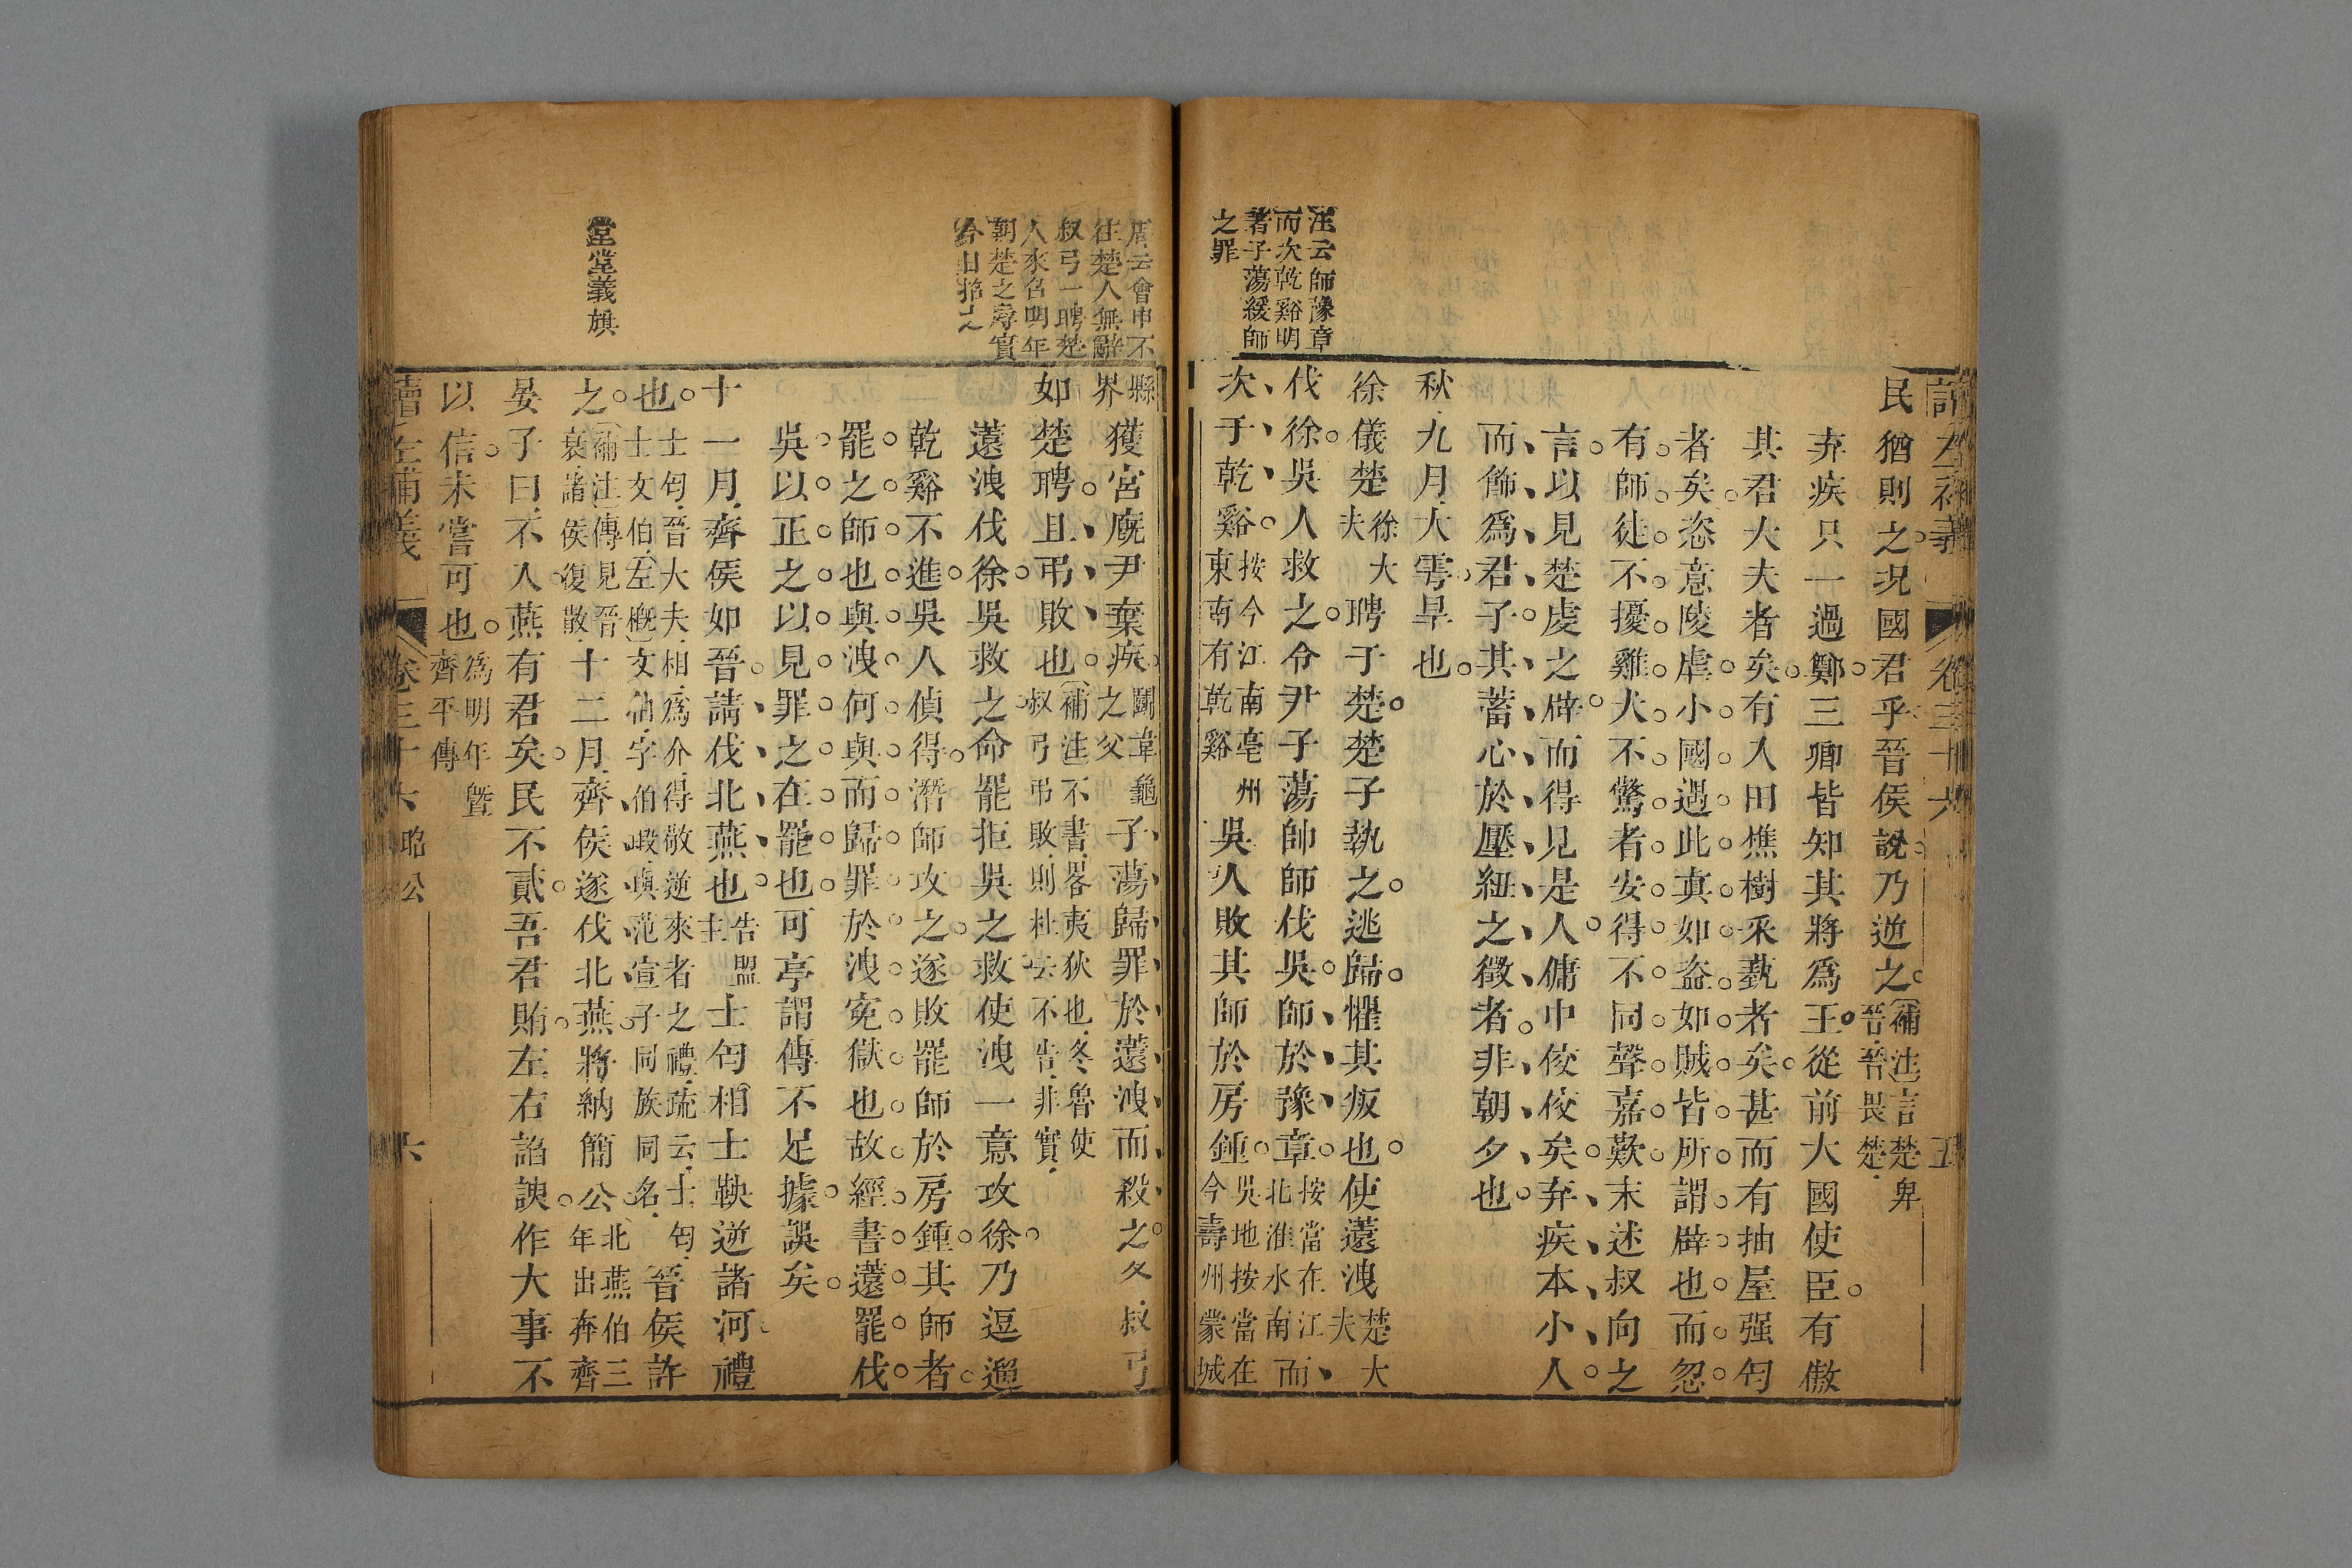 讀左補義
卷三十六
五
民猶則之況國君乎晉侯說乃逆之
補注言楚卑
晉晉畏楚
弃疾只一過鄭三卿皆知其將爲王從前大國使臣有傲
其君大夫者矣有入田樵樹采蓺者矣甚而有抽屋强匄
者矣恣意陵虐小國遇此真如盜如賊皆所謂辟也而忽
有師徒不擾雞犬不驚者安得不同聲嘉歎末述叔向之
言以見楚虔之辟而得見是人傭中佼佼矣弃疾本小人
而飾爲君子其蓄心於壓紐之徵者非朝夕也
秋九月大雩旱也
徐儀楚
徐大
夫
聘于楚楚子執之逃歸懼其叛也使薳洩
楚大
夫
伐徐吳人救之令尹子蕩帥師伐吳師於豫章
按當在江
北淮水南
而
次于乾谿
按今江南亳州
東南有乾谿
吳人敗其師於房鍾
吳地按當在
今壽州蒙城
注云師豫章
而次乾谿明
者子蕩緩師
之罪
縣
界
獲宮廄尹棄疾
鬬韋龜
之父
子蕩歸罪於薳洩而殺之冬叔弓
如楚聘且弔敗也
補注不書畧夷狄也冬魯使
叔弓弔敗則杜云不告非實
薳洩伐徐吳救之命罷拒吳之救使洩一意攻徐乃逗遛
乾谿不進吳人偵得潛師攻之遂敗罷師於房鍾其師者
罷之師也與洩何與而歸罪於洩寃獄也故經書薳罷伐
吳以正之以見罪之在罷也可亭謂傳不足據誤矣
十一月齊侯如晉請伐北燕也
告盟
主
士匄相士鞅逆諸河禮
也
士匄晉大夫相爲介得敬逆來者之禮疏云士匄
士文伯左概文伯字伯瑕與范宣子同族同名
晉侯許
之
補注傳見晉
衰諸侯復散
十二月齊侯遂伐北燕將納簡公
北燕伯三
年出奔齊
晏子曰不入燕有君矣民不貳吾君賄左右諂諛作大事不
以信未嘗可也
爲明年暨
齊平傳
周云會申不
往楚人無辭
叔弓一聘楚
人來召明年
朝楚之辱實
堂堂義旗
讀左補義
卷三十六
昭公
六